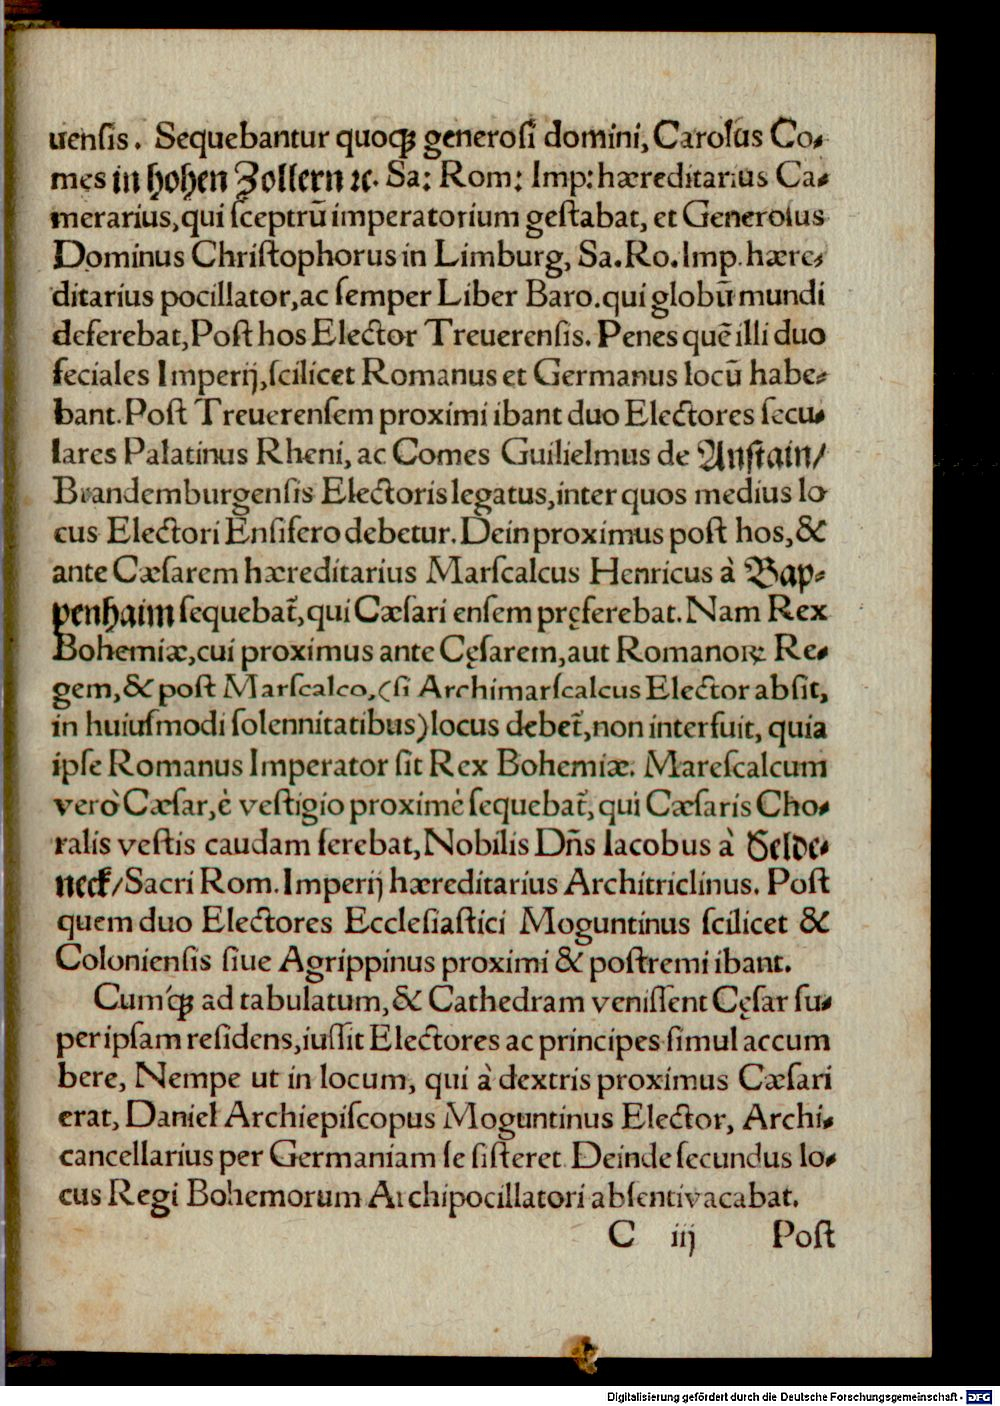 uenſis. Sequebantur quoqꝫ generoſi domini, Carolus Co⸗
mes in hohen Zollern ꝛc. Sa: Rom: Imp: hæreditarius Ca⸗
merarius, qui ſceptrū imperatorium geſtabat, et Generoſus
Dominus Chriſtophorus in Limburg, Sa. Ro. Imp. hære⸗
ditarius pocillator, ac ſemper Liber Baro. qui globū mundi
deferebat, Poſt hos Elector Treuerenſis. Penes quē illi duo
feciales Imperij, ſcilicet Romanus et Germanus locū habe⸗
bant. Poſt Treuerenſem proximi ibant duo Electores ſecu⸗
lares Palatinus Rheni, ac Comes Guilielmus de Anſtain/
Brandemburgenſis Electoris legatus, inter quos medius lo
cus Electori Enſifero debetur. Dein proximus poſt hos, &
ante Cæſarem hæreditarius Marſcalcus Henricus à Bap⸗
penhaim ſequebat᷑, qui Cæſari enſem pręferebat. Nam Rex
Bohemiæ, cui proximus ante Cęſarem, aut Romanoꝝ Re⸗
gem, & poſt Marſcalco, (ſi Archimarſcalcus Elector abſit,
in huiuſmodi ſolennitatibus) locus debet᷑, non interfuit, quia
ipſe Romanus Imperator ſit Rex Bohemiæ. Mareſcalcum
verò Cæſar, è veſtigio proximè ſequebat᷑, qui Cæſaris Cho⸗
ralis veſtis caudam ferebat, Nobilis Dn̄s Iacobus à Selde⸗
neck/ Sacri Rom. Imperij hæreditarius Architriclinus. Poſt
quem duo Electores Eccleſiaſtici Moguntinus ſcilicet &
Colonienſis ſiue Agrippinus proximi & poſtremi ibant.
Cum´qꝫ ad tabulatum, & Cathedram veniſſent Cęſar ſu⸗
per ipſam reſidens, iuſſit Electores ac principes ſimul accum
bere, Nempe ut in locum, qui à dextris proximus Cæſari
erat, Daniel Archiepiſcopus Moguntinus Elector, Archi⸗
cancellarius per Germaniam ſe ſiſteret. Deinde ſecundus lo⸗
cus Regi Bohemorum Archipocillatori abſenti vacabat.
C iij Poſt
Digitalisierung gefördert durch die Deutsche Forschungsgemeinschaft - DFG